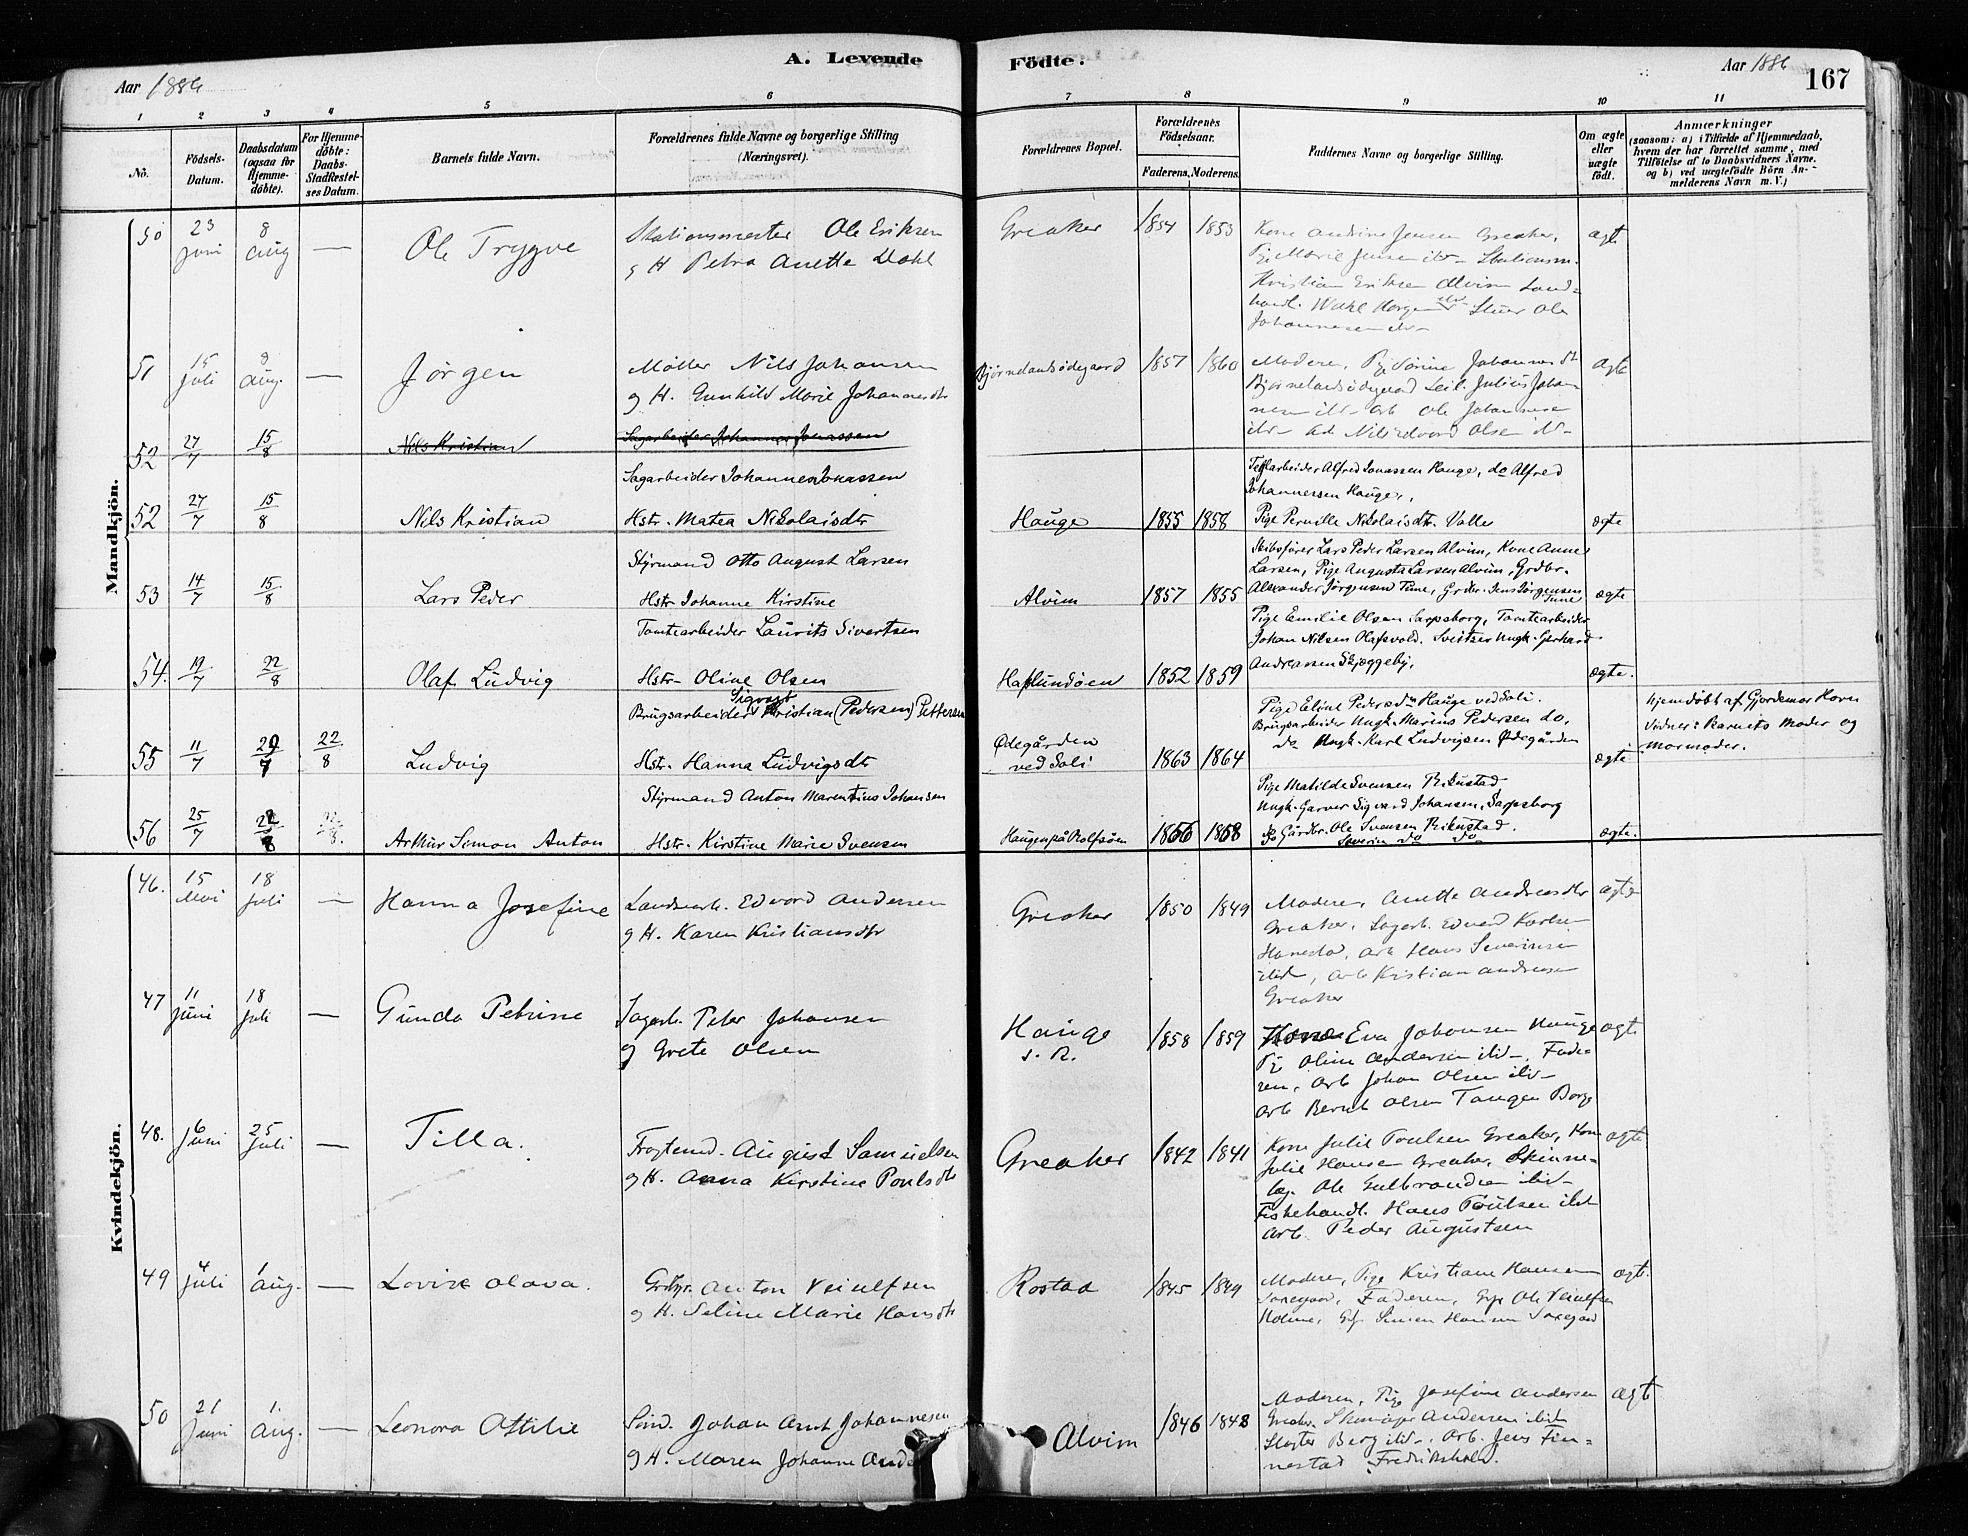 A. Levende Födte.
Aar 1886
Aar 1886
167
1 2 3 4 5 6 7 8 9 10 11
No.
Födsels-Datum.
Daabsdatum (ogsaa for Hjemme-döbte).
For Hjemme-döbte: Daabs-Stadfæstel-ses Datum.
Barnets fulde Navn.
Forældrenes fulde Navne og borgerlige Stilling
(Næringsvei).
Forældrenes Bopæl.
Forældrenes Födselsaar.
Faderens. Moderens.
Faddernes Navne og borgerlige Stilling.
Om ægte eller uægte födt.
Anmærkninger
(saasom: a) i Tilfælde af Hjemmedaab,
hvem der har forrettet samme, med
Tilföielse af to Daabsvidners Navne,
og b) ved uægtefödte Börn An-
melderens Navn m. V.)
Mandkjön.
50 23 Juni 8 Aug — Ole Trygve
Stationsmester Ole Eriksen
g H Petra Anette Dahl
Greaker 1854 1853
Kone Andrine Jensen Greaker,
Pi. Marie Jensen itd– Stationsm.
Kristian Eriksen Alvim Land-
Johannesen itd–
ægte
51 15 Juli 8 Aug. — Jørgen
Møller Nils Johansen
g H. Gunhild Marie Johannesdtr
Bjørnelandsødegaard 1857 1860
Moderen, Pi Sørine Johannesdtr
Bjørnelandsødegaard Seil. Julius Johan
nesen itd– Arb Ole Johannesen
itd– Nils Edvard Olsen itd–
ægte
52 27/7 15/8 Nils Kristian
Sagarbeider Johannes Jonassen
52 27/7 15/8 Nils Kristian
Sagarbeider Johannes Jonassen
Hstr. Matea Nikolaisdtr
Hauge 1855 1858
Teglarbeider Alfred Jonassen Hauge, do Alfred
Johannessen Hauge,
Pige Pernille Nikolaisdtr. Valle
ægte
53 14/7 15/8 Lars Peder
Styrmand Otto August Larsen
Hstr Johanne Kirstine
Alvim 1857 1855
Skibsfører Lars Peder Larsen Alvim, Kone Anne
Larsen, Pige Augusta Larsen Alvim, Grdbr.
Alexander Jørgensen Tune, Grdbr. Jens Jørgensen
Tune
ægte
54. 19/7 22/8 Olaf Ludvig
Tomtearbeider Laurits Sivertsen
Hstr– Oline Olsen
Haflundøen 1852 1859
Pige Emilie Olsen Sarpsborg, Tomtearbeider
Johan Nilsen Olafsvold. Sveitser Ungk. Gerhard
Andreassen Skjeggeby.
ægte.
55 11/7 29/7 22/8 Ludvig
Brugsarbeider Sigvart Kristian (Pedersen) Pettersen
Hstr. Hanna Ludvigsdtr
Ødegården
ved Soli 1863 1864
Pige Eline Pedersdtr Hauge ved Soli.
Brugsarbeider Ungk. Marius Pedersen do.
do Ungk. Karl Ludvigsen Ødegården
ægte
Hjemdøbt af Gjordemor Horn
Vidner: Barnets Moder og
Mormoder.
56 25/7 22/8 22/8. Arthur Simon Anton
Styrmand Anton Marentius Johansen
Hstr. Kirstine Marie Svensen
Haugen på Rolfsøen 1856 1858
Pige Matilde Svensen Rikustad
Ungk. Garver Sigvard Johansen, Sarpsborg
Gårdbr. Ole Svensen Rikustad.
Severin do do
ægte.
Kvindekjön.
46. 15 Mai 18 Juli — Hanna Josefine
Landarb. Edvard Andersen
g H. Karen Kristiansdtr
Greaker 1850 1849
Moderen, Anette Andreasdtr
Greaker, Sagarb. Edvard Karlsen
Hanestad, Arb Hans Severinsen
itsd, Arb Kristian Andresen
Greaker
ægte
47 11 Juni 18 Juli — Gunda Petrine
Sagarb. Peter Johansen
g Grete Olsen
Hauge
s. R. 1858 1859
Kone Eva Johansen Hauge
Pi Oline Andersen itd–, Fade-
ren, Arb Johan Olsen itd–
Arb Bernt Olsen Tangen Borge
ægte
48. 6 Juni 25 Juli — Tilla.
Fragtemd. August Samuelsen
g H. Anna Kirstine Poulsdtr
Greaker 1842 1841
Kone Julie Poulsen Greaker, Kone
Julie Hansen Greaker, Skinne-
læg. Ole Gulbrandsen itd–
Fiskehandl. Hans Poulsen itd
Arb. Peder Augustsen
ægte
49 4 Juli 1 Aug. — Lovise Olava.
Grbr. Anton Veiulfsen
g H. Seline Marie Hansdtr
Rostad 1845 1849
Moderen, Pige Kristiane Hansen
Saxegaard, Faderen, Ole Veiulfsen
Holme, Simen Hansen Saxegaard
ægte.
50 21 Juni 1. Aug. — Leonora Ottilie
Smd. Johan Arnt Johannesen
g H. Maren Johanne Ande
Alvim 1846 1848
Moderen, Pige Josefine Andersen
Greaker, Andersen itd
Slagter Berg itd–. Arb. Jens Fin-
nestad, Fredriksholm.
ægte